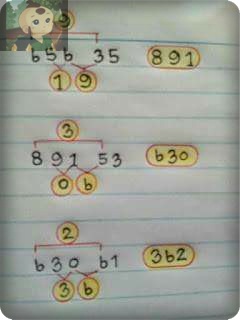 9
656 35 891
1 9
3
891 53 630
0 6
2
630 61 362
3 6